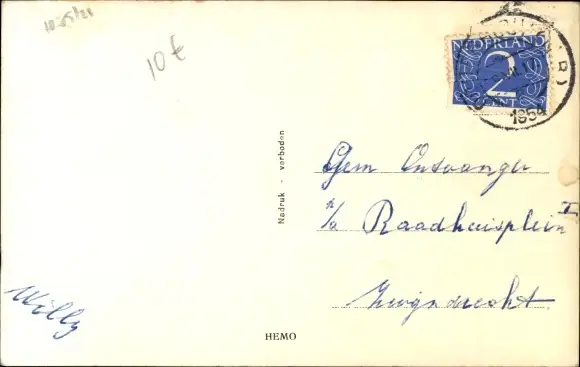 10 €
NEDERLAND
2
CENT
1954
Nadruk - verboden
Gem Ontvanger
p/a Raadhuisplein
Zwijndrecht.
Willy
HEMO